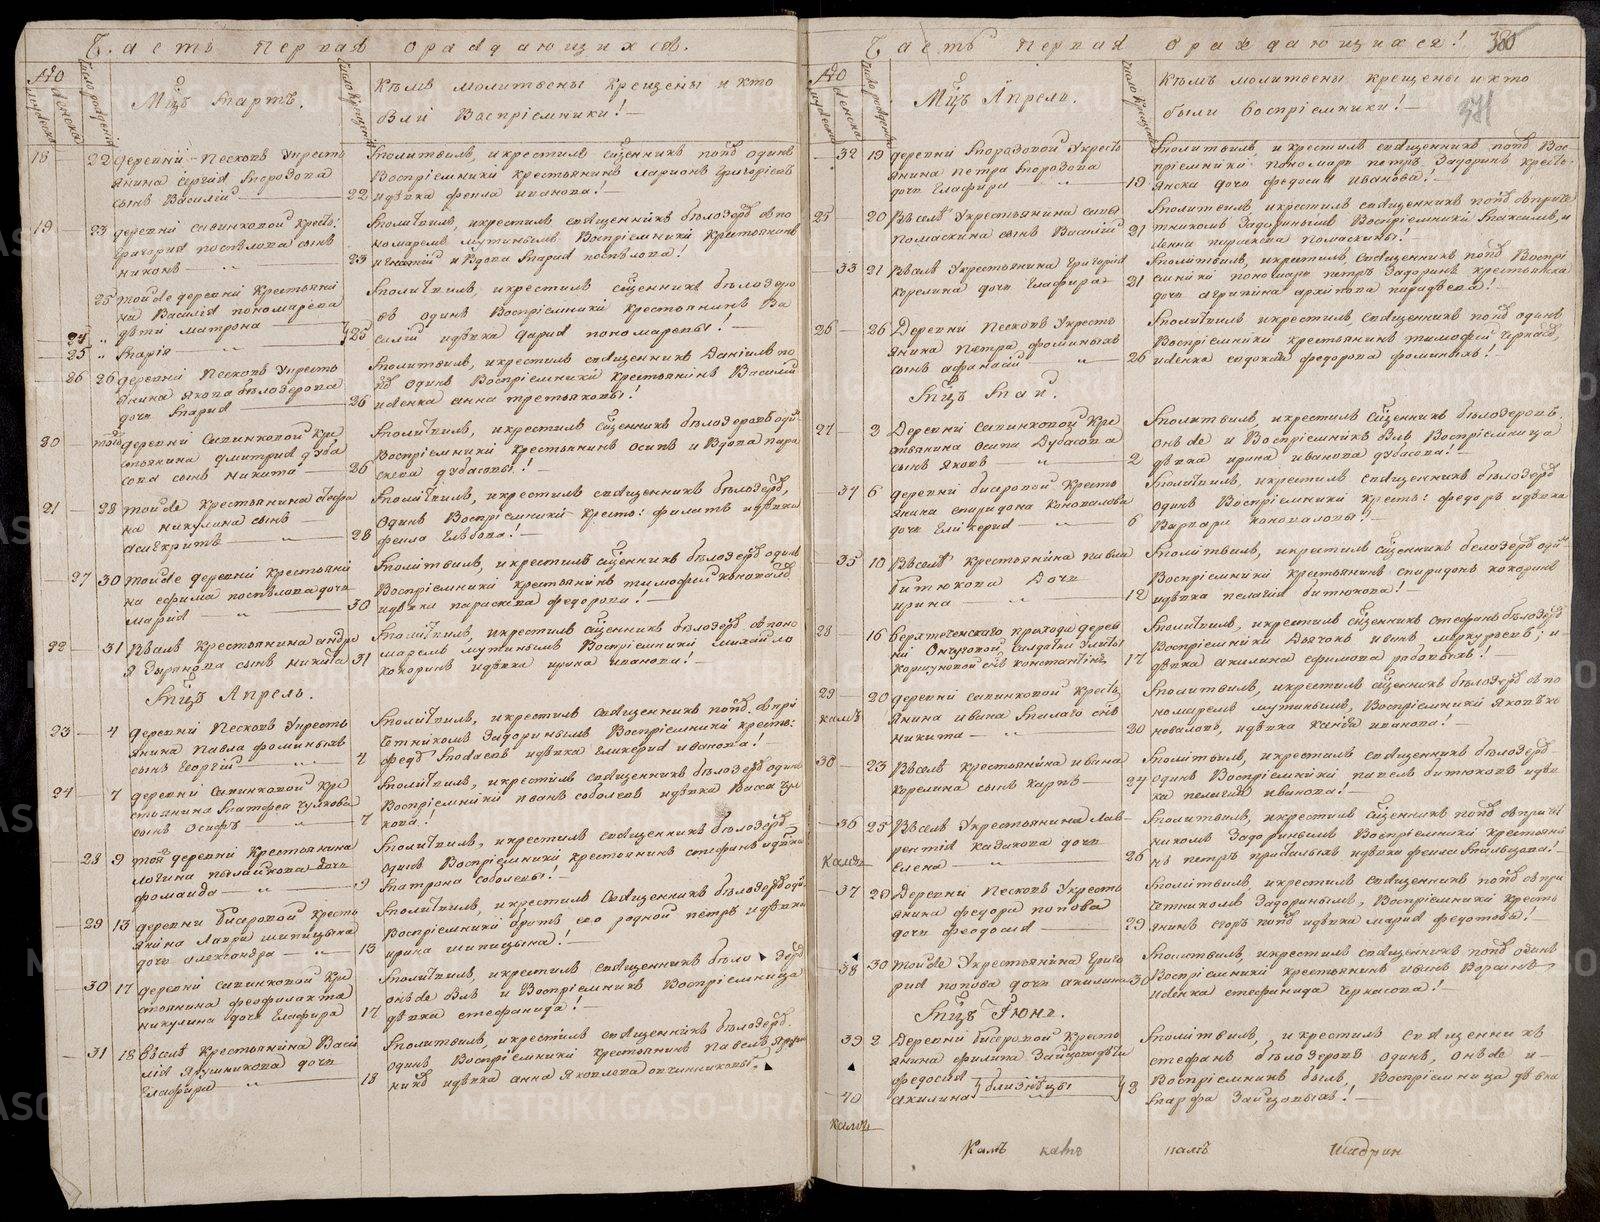 Часть первая ораждающихся.
Мцъ Мартъ.
Кѣмъ молитвены крещены и кто
были Воспрiемники!
18 22 деревни Песковъ укресть
янина Сергия Мородова
сынъ Василiй
Молитвилъ, икрестилъ сщенникъ попъ одинъ
Воспрiемники крестьянинъ Ларионъ Григорiевъ
22 идѣвка фекла иванова!
19 23 деревни савинковой кресть:
Григория поспѣлова сынъ
никонъ
Молитвилъ, икрестилъ священникъ бѣлозеръ спо
номаремъ мутинымъ Воспрiемники Крестьянинъ
23 игнатiй ивдова Мария поспѣлова!
25 тойже деревни Крестьяни
на Василия пономарева
24 дѣти матрона
25 Марiя
Молитвилъ, икрестилъ сщенникъ бѣлозеро
въ одинъ Воспрiемники Крестьянинъ Ва
25 силiй идѣвка дария пономаревы!
26 26 деревни Песковъ укресть
янина Якова бѣлозерова
дочь Мария
Молитвилъ, икрестилъ священникъ Данiилъ по
пъ одинъ Воспрiемники крестьянинъ Василiй
26 иженка анна третьяковы!
20 тогоже деревни Савинковой Кре
стьянина дмитрия дуба
сова сынъ никита
Молитвилъ, икрестилъ сщенникъ бѣлозеровъ оди
Воспрiемники крестьянинъ Осипъ и Вдова пара
26 скева дубасовы!
21 28 тойже Крестьянина стефа
на никулина сынъ
асигкритъ
Молитвилъ, икрестилъ священникъ бѣлозеръ,
одинъ Воспрiемники кресть: филипъ идѣвка
28 фекла Глѣбова!
27 30 тойже деревни Крестьяни
на ефима поспѣлова дочь
мария
Молитвилъ, икрестилъ сщенникъ бѣлозеръ одинъ
Воспрiемники крестьянинъ тимофей коновалъ
30 идѣвка параскева федорова!
22 31 Всѣлѣ Крестьянина андре
я Зырянова сынъ никита
Молитвилъ, икрестилъ сщенникъ бѣлозеръ спопо
маремъ мутинымъ Воспрiемники михайло
31 кокоринъ идѣвка ирина иванова!
Мцъ Апрель.
23 4 деревни Песковъ Укресть
янина Павла фоминыхъ
сынъ Георгiй
Молитвилъ, икрестилъ Священникъ попъ спри
четникомъ Задоринымъ Воспрiемники кресть:
4 федъ Модаевъ идѣвка Гликерия иванова!
24 7 деревни Савинковой Кре
стьянина Матфея Чулкова
сынъ Осифъ
Молитвилъ, икрестилъ священникъ бѣлозеръ одинъ
Воспрiемники иванъ соболевъ идѣвка Васса Чул
7 кова!
28 9 тойже деревни Крестьянина
логина пылайкова дочь
фомаида
Молитвилъ, икрестилъ священникъ бѣлозеръ
одинъ Воспрiемники крестьянинъ стефанъ идѣвка
9 Матрона соболевы!
29 13 деревни бисеровой кресть
янина Лавра шипицына
дочь александра
Молитвилъ, икрестилъ Священникъ бѣлозеръ оди
Воспрiемники братъ его родной петръ идѣвка
13 ирина шипицына!
30 17 деревни Савинковой Кре
стьянина феофилакта
никулина дочь Глафира
Молитвилъ, икрестилъ священникъ бѣло зеръ
онъже Былъ и Воспрiемникъ Воспрiемница
17 дѣвка стефанида!
31 18 Всѣлѣ Крестьянина Васи
лiя Ярушникова дочь
Глафира
Молитвилъ, икрестилъ священникъ бѣлозеръ
одинъ, Воспрiемники крестьянинъ Павелъ
18 идѣвка анна Яковлева овчинниковы.
Часть первая ораждающихся! 380
371
Мцъ Апрель.
Кѣмъ молитвены крещены и кто
были воспрiемники!
32 19 деревни Мородовой Укресть
янина Петра Мородова
дочь Глафира
Молитвилъ и крестилъ священникъ попъ Вос
прiемники: пономарь петръ Задоринъ кресть
19 янска дочь федосия иванова!
25 20 Всѣлѣ Укрестьянина савы
Помаскина сынъ Василiй
Молитвилъ икрестилъ священникъ попъ сприче
21 тникомъ Задоринымъ Воспрiемники Максимъ, и
женка параскева Помаскины!
33 21 Всѣлѣ Укрестьянина Григория
Корелина дочь Глафира
Молитвилъ, икрестилъ, священникъ попъ Воспрi
21 емники пономарь петръ Задоринъ крестьянска
дочь агрипина архипова парадѣева!
26 26 Деревни Песковъ Укресть
янина Петра фоминыхъ
сынъ афанасiй
Молитвилъ икрестилъ, священникъ попъ одинъ
Воспрiемники крестьянинъ тимофей Черкасъ,
26 иженка евдокия федорова фоминыхъ!
Мцъ Маи.
27 2 Деревни Савинковой Кре
стьянина Осипа Дубасова
сынъ Яковъ
Молитвилъ, икрестилъ, сщенникъ бѣлозеровъ,
онъже и Воспрiемникъ Былъ Воспрiемница
2 дѣвка ирина иванова дубасова!
34 6 деревни бисеровой Кресть
янина спиридона Коновалова
дочь Гликерия
Молитвилъ, икрестилъ священникъ бѣлозеръ
одинъ Воспрiемники кресть: федоръ идѣвка
6 Варвара коноваловы!
35 10 Всѣлѣ Крестьянина павла
битюкова Дочь
ирина
Молитвилъ, икрестилъ сщенникъ бѣлозеръ оди
Воспрiемники крестьянинъ спиридонъ кокоринъ
12 идѣвка пелагия битюкова!
28 16 Верхтеченскаго прихода дерев
ни Ожгиховой, салдатки Улиты
Коршуновой сынъ константинъ
Молитвилъ, икрестилъ сщенникъ Стефанъ бѣлозеръ
Воспрiемники Дьячокъ ивенъ меркурьевъ, и
17 дѣвка акилина ефимова работыхъ!
29 20 деревни савинковой кресть
янина ивана Малаго сынъ
никита
Молитвилъ, икрестилъ, сщенникъ бѣлозеръ спо
номаремъ мутинымъ, Воспрiемники Яковъ ко
20 новаловъ, идѣвка Ксендя иванова!
30 23 Всѣлѣ Крестьянина ивана
Корелина сынъ карпъ
Молитвилъ, икрестилъ священникъ бѣлозеръ
24 одинъ Воспрiемники павелъ битюковъ идѣв
ка пелагия иванова!
36 25 Всѣлѣ Укрестьянина Лав
рентiя Кадикова дочь
Елена
Молитвилъ, икрестилъ сщенникъ попъ спричет
никомъ Задоринымъ Воспрiемники крестьяни
26 нъ петръ прибылыхъ идѣвка фекла Мальцова!
37 29 Деревни Песковъ Укресть
янина федора попова
дочь феодосiя
Молитвилъ, икрестилъ священникъ попъ спри
четникомъ Задоринымъ, Воспрiемники кресть
29 янинъ егоръ попъ идѣвка мария федотова!
38 30 тойже Укрестьянина Григо
рия попова дочь акилина
Молитвилъ, икрестилъ священникъ попъ одинъ
30 Воспрiемники крестьянинъ иванъ Воронинъ
иженка стефанида Черкасова!
Мцъ Iюнь.
39 2 Деревни бисеровой Кресть
янина филипа Зайцовадѣти
федосия
40 акилина близнецы
Молитвилъ, и крестилъ священникъ
стефанъ бѣлозеровъ одинъ, онъже и
3 Воспрiемникъ былъ, Воспрiемница дѣвка
Марфа Зайцовыхъ!